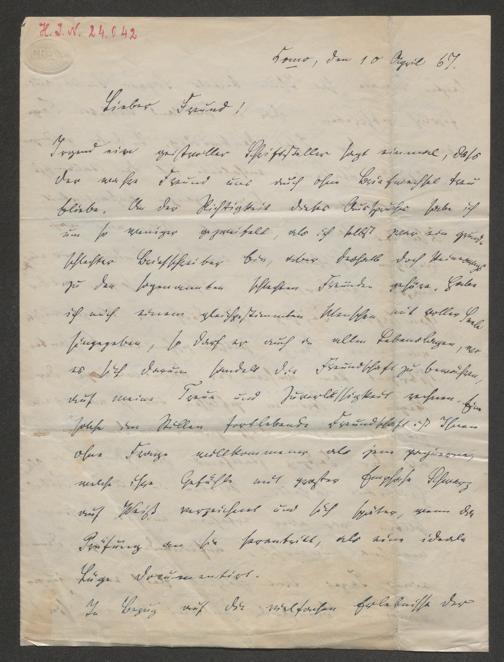 H. I. N. 24.042
Como, den 10 April 67.
Lieber Freund!
Irgend ein geistvoller Schriftsteller sagt einmal, dass
der wahre Freund uns auch ohne Briefwechsel treu
bliebe. An der Richtigkeit dieses Ausspruchs habe ich
um so weniger gezweifelt, als ich selbst zwar ein grund-
schlechter Briefschreiber bin, aber deshalb doch keineswegs
zu den sogenannten schlechten Freunden gehöre. Habe
ich mich einem gleichgestimmten Menschen mit voller Seele
hingegeben, so darf er auch in allen Lebenslagen, wo
es sich darum handelt die Freundschaft zu bewähren,
auf meine Treue und Zuverlässigkeit rechnen. Eine
solche im Stillen fortlebende Freundschaft ist Ihnen
ohne Frage willkommener als jene
welche ihre Gefühle mit großer Emphase Schwarz
auf Weiß verzeichnet und sich später, wenn die
Prüfung an sie herantritt, als eine ideale
Lüge documentirt.
In Bezug auf die vielfachen Erlebnisse der